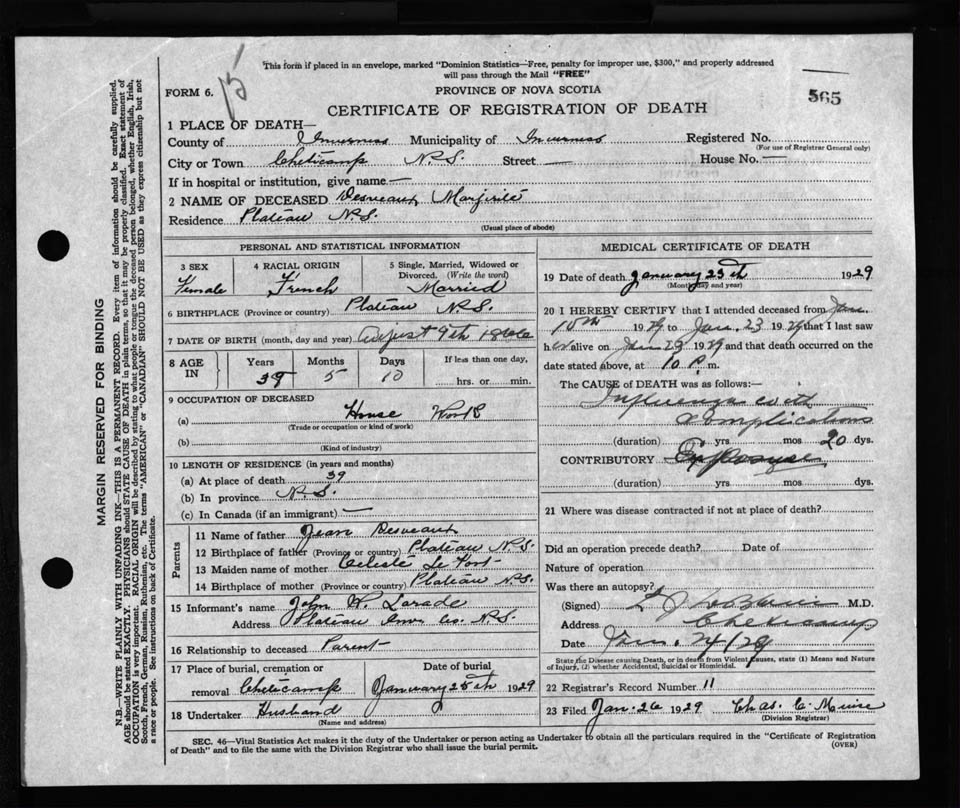 15
This form if placed in an envelope, marked "Dominion Statistics—Free, penalty for improper use, $300," and properly addressed
will pass through the Mail "FREE"
FORM 6.
PROVINCE OF NOVA SCOTIA
565
CERTIFICATE OF REGISTRATION OF DEATH
1 PLACE OF DEATH—
County of Inverness Municipality of Inverness Registered No.
(For use of Registrar General only)
City or Town Cheticamp N.S. Street — House No. —
If in hospital or institution, give name —
2 NAME OF DECEASED Desveaux
Residence Plateau N.S.
(Usual place of abode)
PERSONAL AND STATISTICAL INFORMATION
3 SEX Female
4 RACIAL ORIGIN French
5 Single, Married, Widowed or
Divorced. (Write the word)
Married
6 BIRTHPLACE (Province or country) Plateau N.S.
7 DATE OF BIRTH (month, day and year) August 9th
8 AGE IN
Years Months Days If less than one day,
39 5 10 hrs. or min.
9 OCCUPATION OF DECEASED
(a) House Work
(Trade or occupation or kind of work)
(b)
(Kind of industry)
10 LENGTH OF RESIDENCE (in years and months)
(a) At place of death 39
(b) In province N.S.
(c) In Canada (if an immigrant) —
Parents
11 Name of father Jean Desveaux
12 Birthplace of father (Province or country) Plateau N.S.
13 Maiden name of mother Celeste Le Fort
14 Birthplace of mother (Province or country) Plateau N.S.
15 Informant's name John W. Larade
Address Plateau Inv. Co. N.S.
16 Relationship to deceased Parent
17 Place of burial, cremation or
removal Cheticamp
Date of burial
January 25th 1929
18 Undertaker Husband
(Name and address)
MEDICAL CERTIFICATE OF DEATH
19 Date of death January 23th 1929
(Month, day and year)
20 I HEREBY CERTIFY that I attended deceased from Jan.
10th 1929 to Jan. 23 1929 that I last saw
her alive on Jan 23 1929 and that death occurred on the
date stated above, at 10 P. m.
The CAUSE of DEATH was as follows:—
Influenza with
complications
(duration) yrs mos 20 dys.
CONTRIBUTORY Exposure
(duration) yrs mos dys.
21 Where was disease contracted if not at place of death?
Did an operation precede death? Date of
Nature of operation
Was there an autopsy?
(Signed) M.D.
Address Cheticamp
Date Jan. 24/29
State the Disease causing Death, or in death from Violent Causes, state (1) Means and Nature
of Injury, (2) whether Accidental, Suicidal or Homicidal.
22 Registrar's Record Number 11
23 Filed Jan. 26 1929 Chas. C. Muise
(Division Registrar)
SEC. 46—Vital Statistics Act makes it the duty of the Undertaker or person acting as Undertaker to obtain all the particulars required in the "Certificate of Registration
of Death" and to file the same with the Division Registrar who shall issue the burial permit.
(OVER)
MARGIN RESERVED FOR BINDING
N.B.—WRITE PLAINLY WITH UNFADING INK—THIS IS A PERMANENT RECORD. Every item of information should be carefully supplied.
AGE should be stated EXACTLY. PHYSICIANS should STATE CAUSE OF DEATH in plain terms, so that it may be properly classified. Exact statement of
OCCUPATION is very important. RACIAL ORIGIN will be described by stating to what people or tongue the deceased person belonged, whether English, Irish,
Scotch, French, German, Russian, Ruthenian, etc. The terms "AMERICAN" or "CANADIAN" SHOULD NOT BE USED as they express citizenship but not
a race or people. See instructions on back of Certificate.